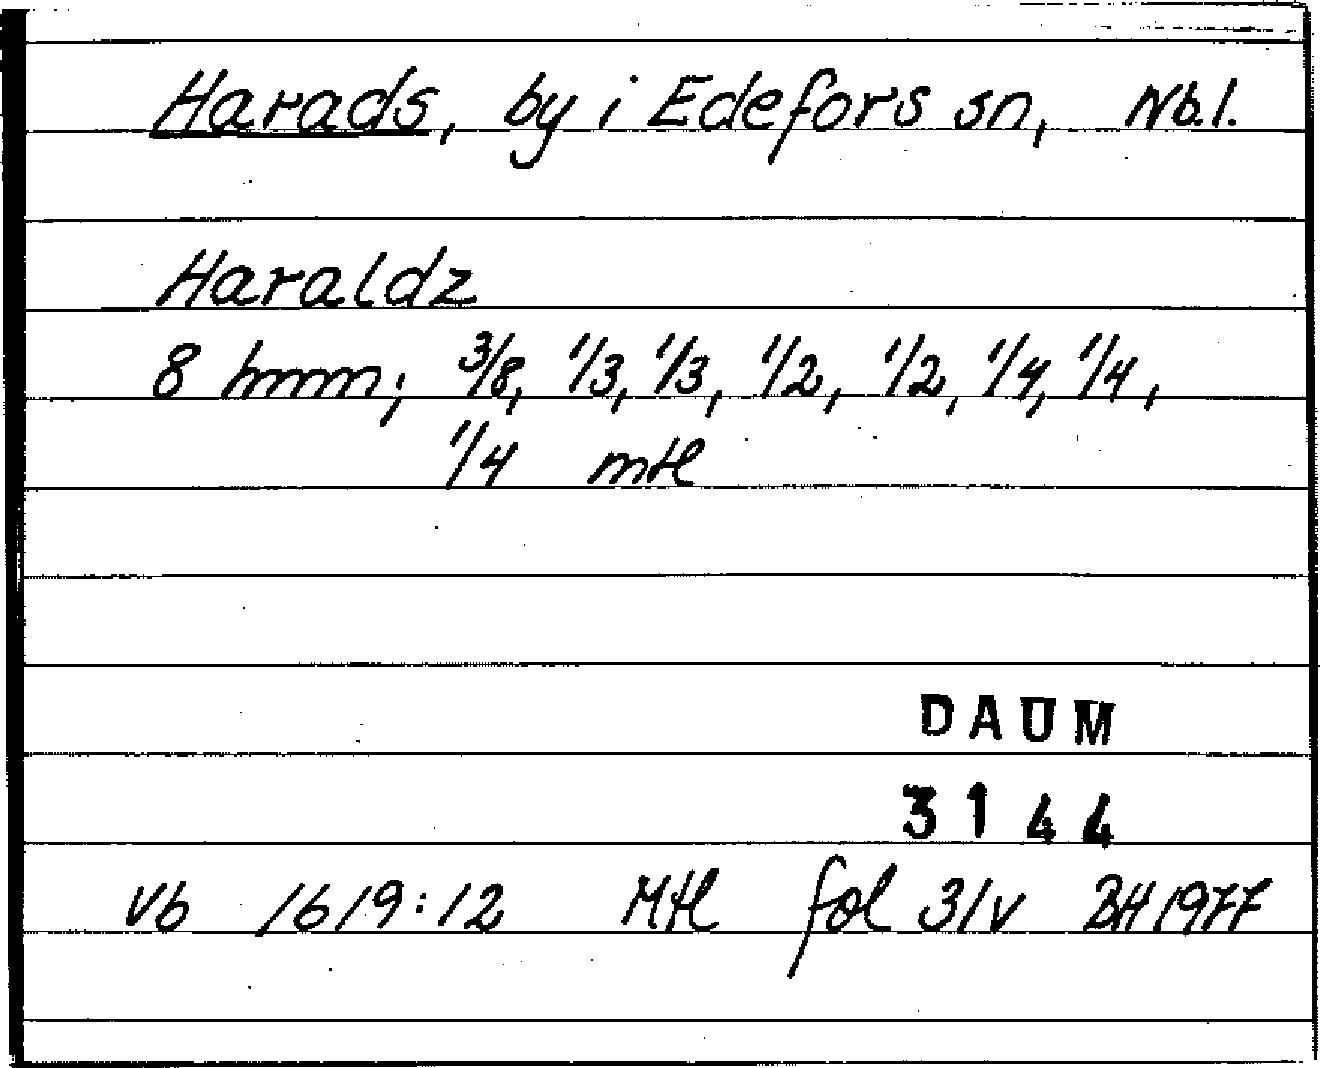 Harads, by i Edefors sn, Nb.l.
Haraldz
8 hmm; 3/8, 1/3, 1/3, 1/2, 1/2, 1/4, 1/4,
1/4 mtl
DAUM
3144
Vb 1619:12 Mtl fol 31v BH 1977